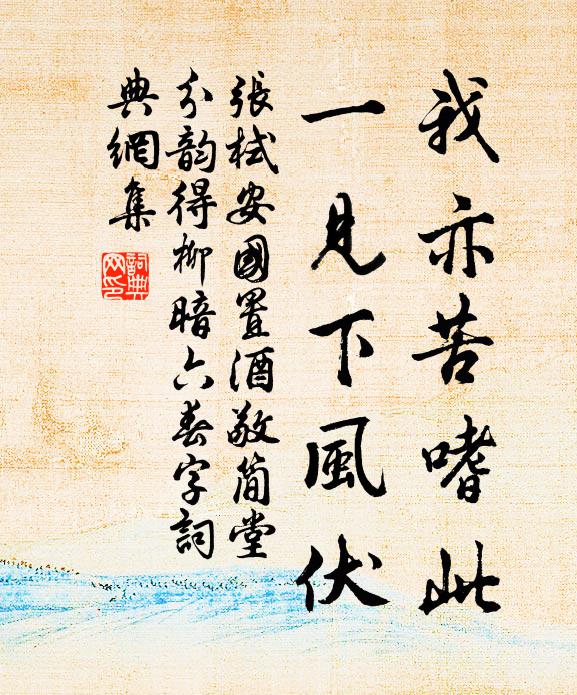 我亦苦嗜此
一見下風伏
張栻安國置酒敬簡堂
分韵得柳暗六春字詞
典網集
詞典
网印